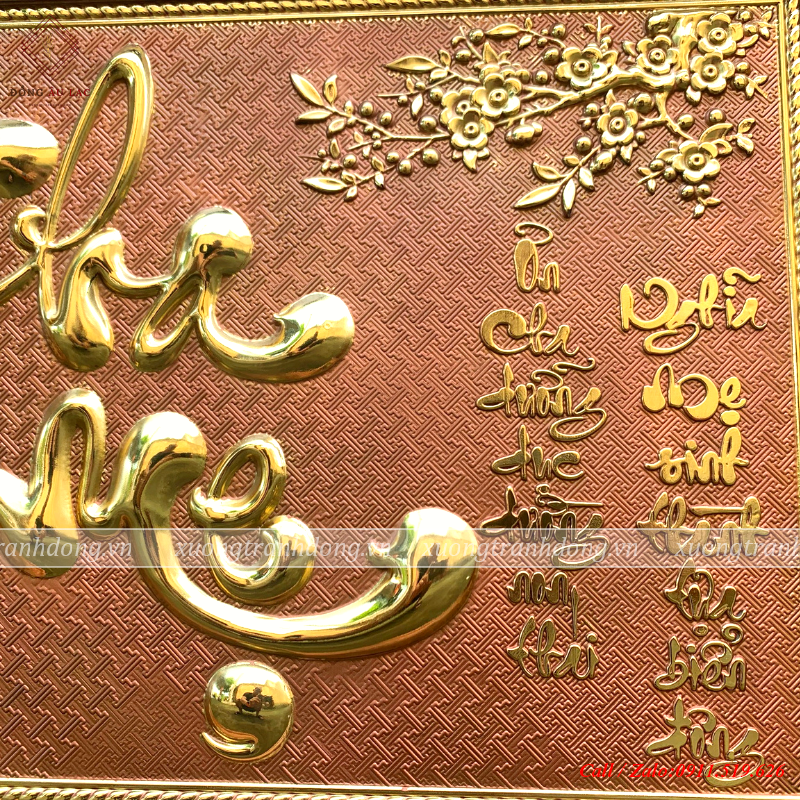 ĐỒNG ÂU LẠC
Cha
Mẹ
Ơn
Cha
dưỡng
dục
non
thái
Nghĩa
Mẹ
sinh
thành
tựa
biển
đông
ranhdong.vn xuongtranhdong.vn xuongtranhdong.vn xuongtran
Call / Zalo:0911.519.626